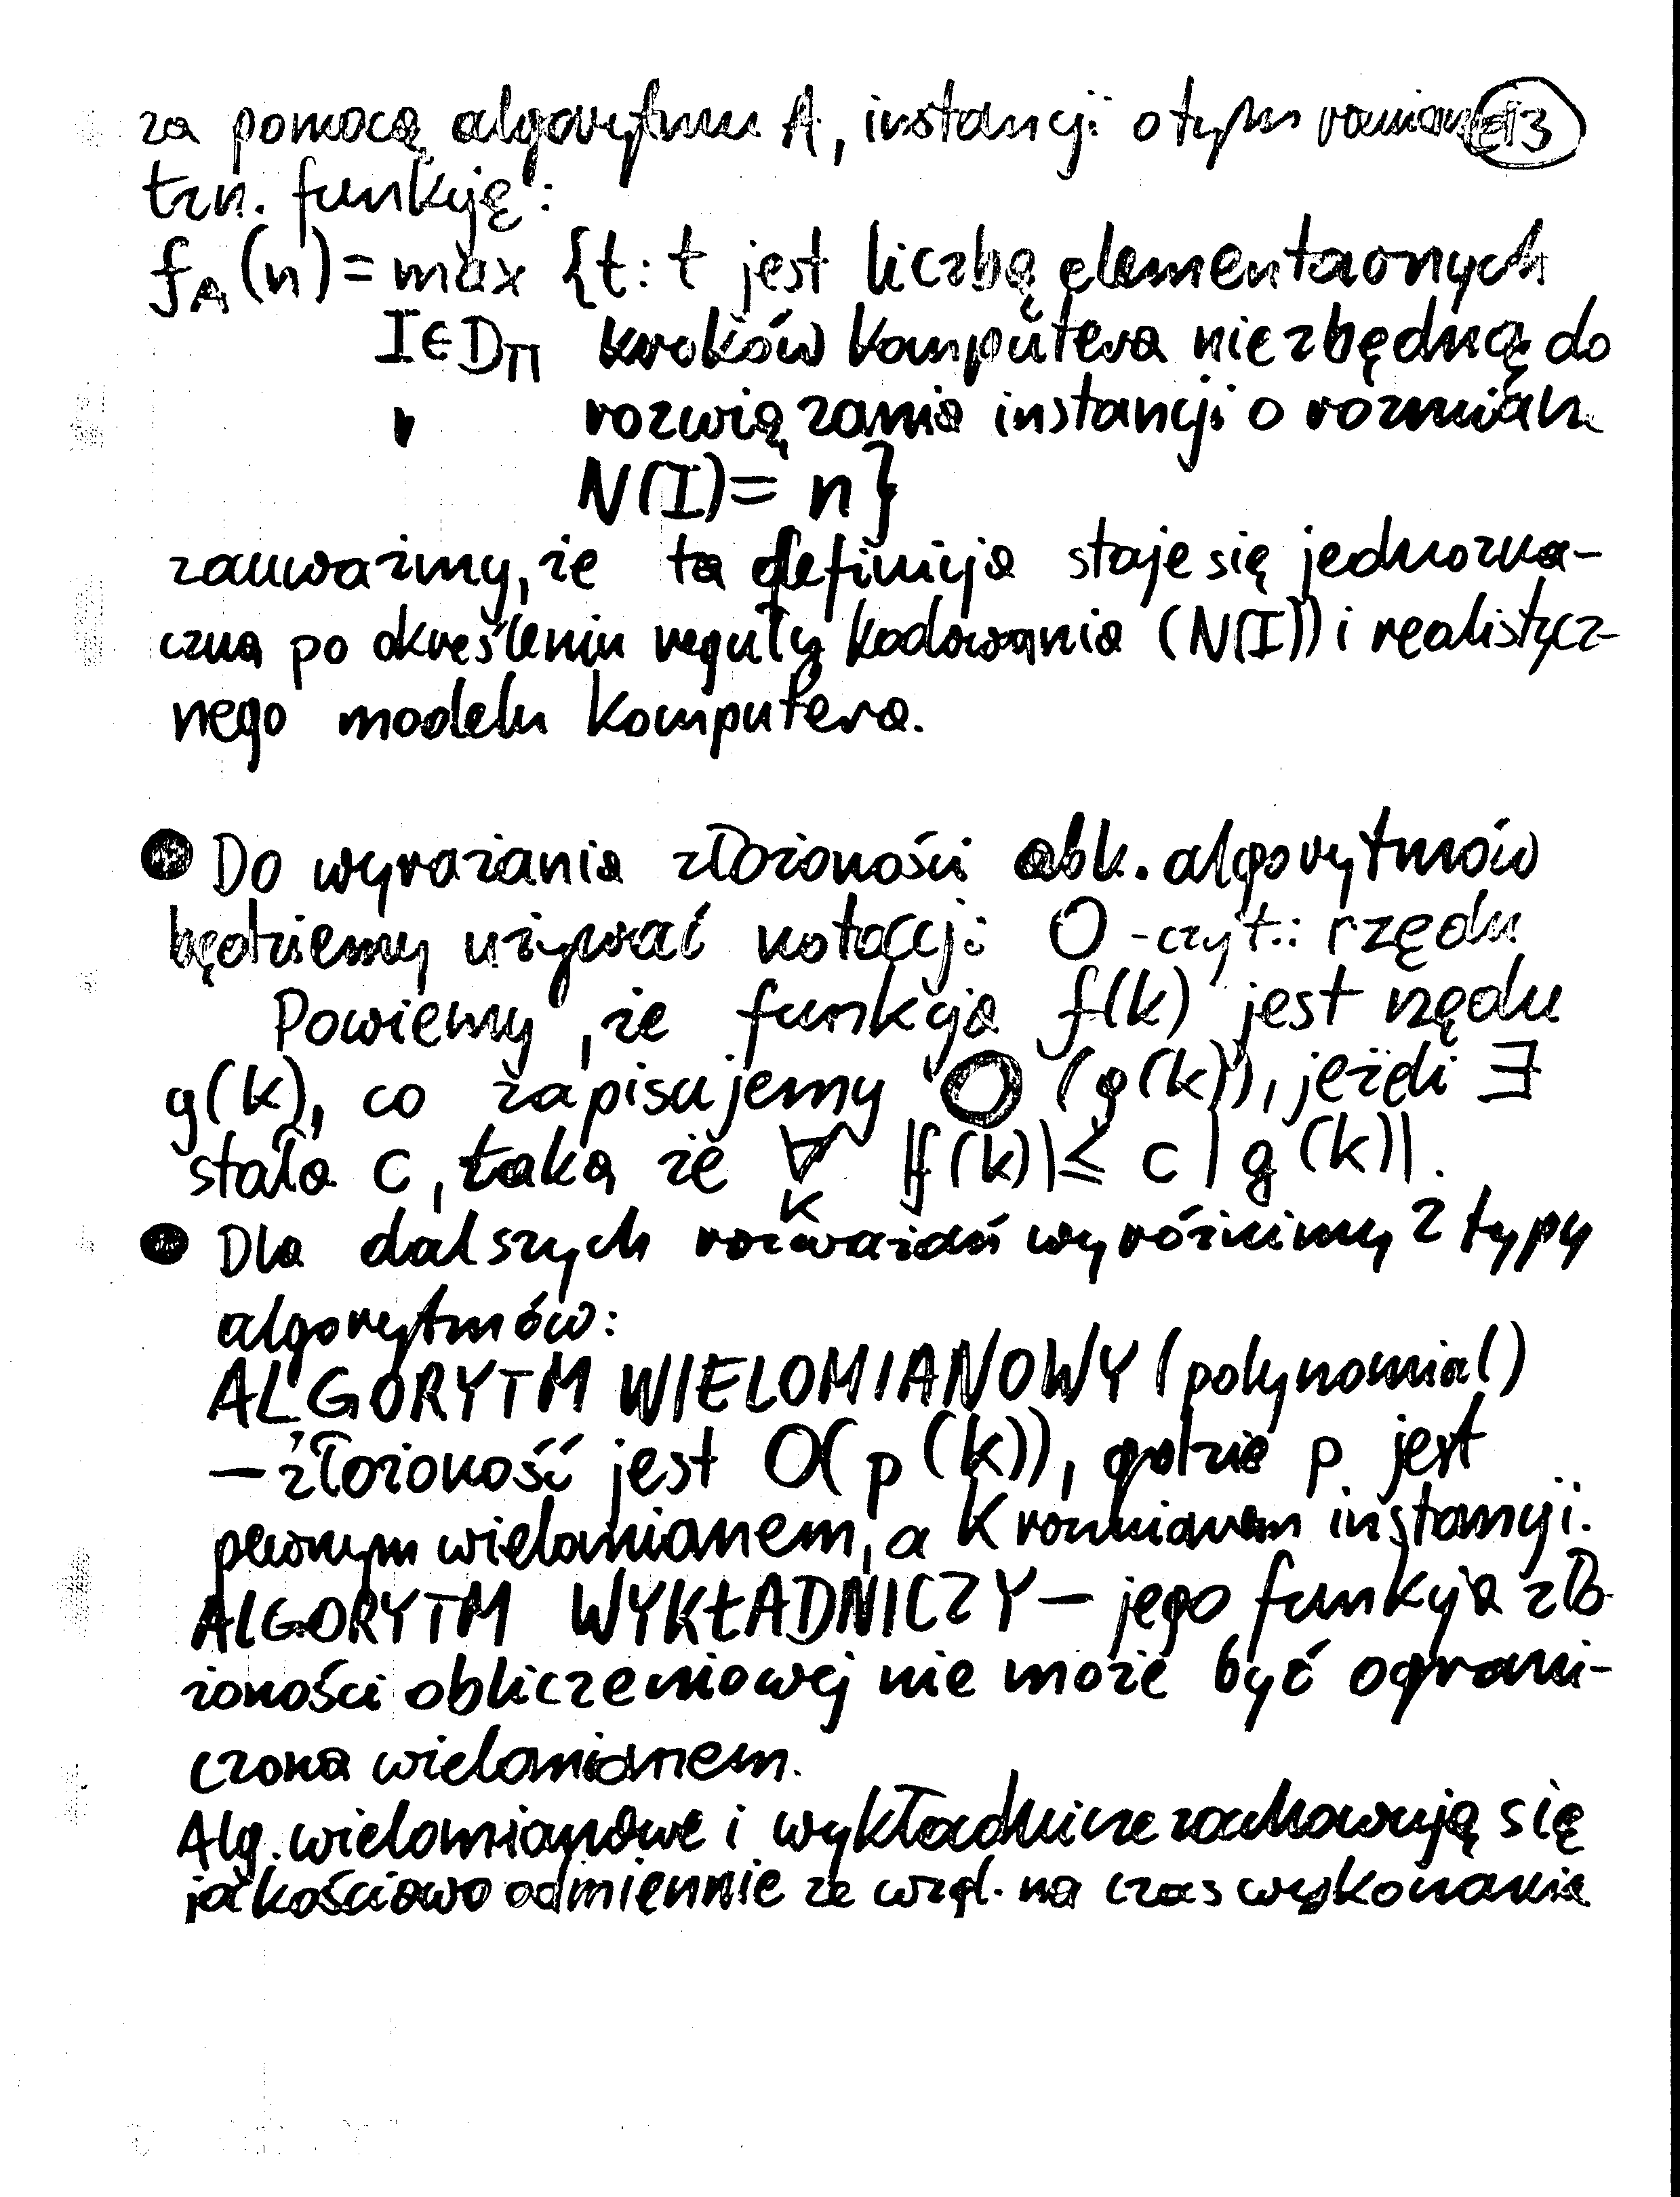 za pomocą algorytmu A, instancji o tym rozmiarze 13
tzn. funkcję:
f_A(n) = max {t: t jest liczbą elementarnych
I∈D_Π kroków komputera niezbędną do
rozwiązania instancji o rozmiarze
N(I) = n}
zauważmy, że ta definicja staje się jednozna-
czna po określeniu reguły kodowania (N(I)) i realistycz-
nego modelu komputera.
● Do wyrażania złożoności obl. algorytmów
będziemy używać notacji O - czyt.: rzędu
Powiemy, że funkcja f(k) jest rzędu
g(k), co zapisujemy O(g(k)), jeżeli ∃
stała c, taka że ∀ |f(k)| ≤ c |g(k)|.
k
● Dla dalszych rozważań wyróżnimy 2 typy
algorytmów:
ALGORYTM WIELOMIANOWY (polynomial)
– złożoność jest O(p(k)), gdzie p jest
pewnym wielomianem, a k rozmiarem instancji.
ALGORYTM WYKŁADNICZY – jego funkcja zło-
żoności obliczeniowej nie może być ograni-
czona wielomianem.
Alg. wielomianowe i wykładnicze zachowują się
jakościowo odmiennie ze wzgl. na czas wykonania